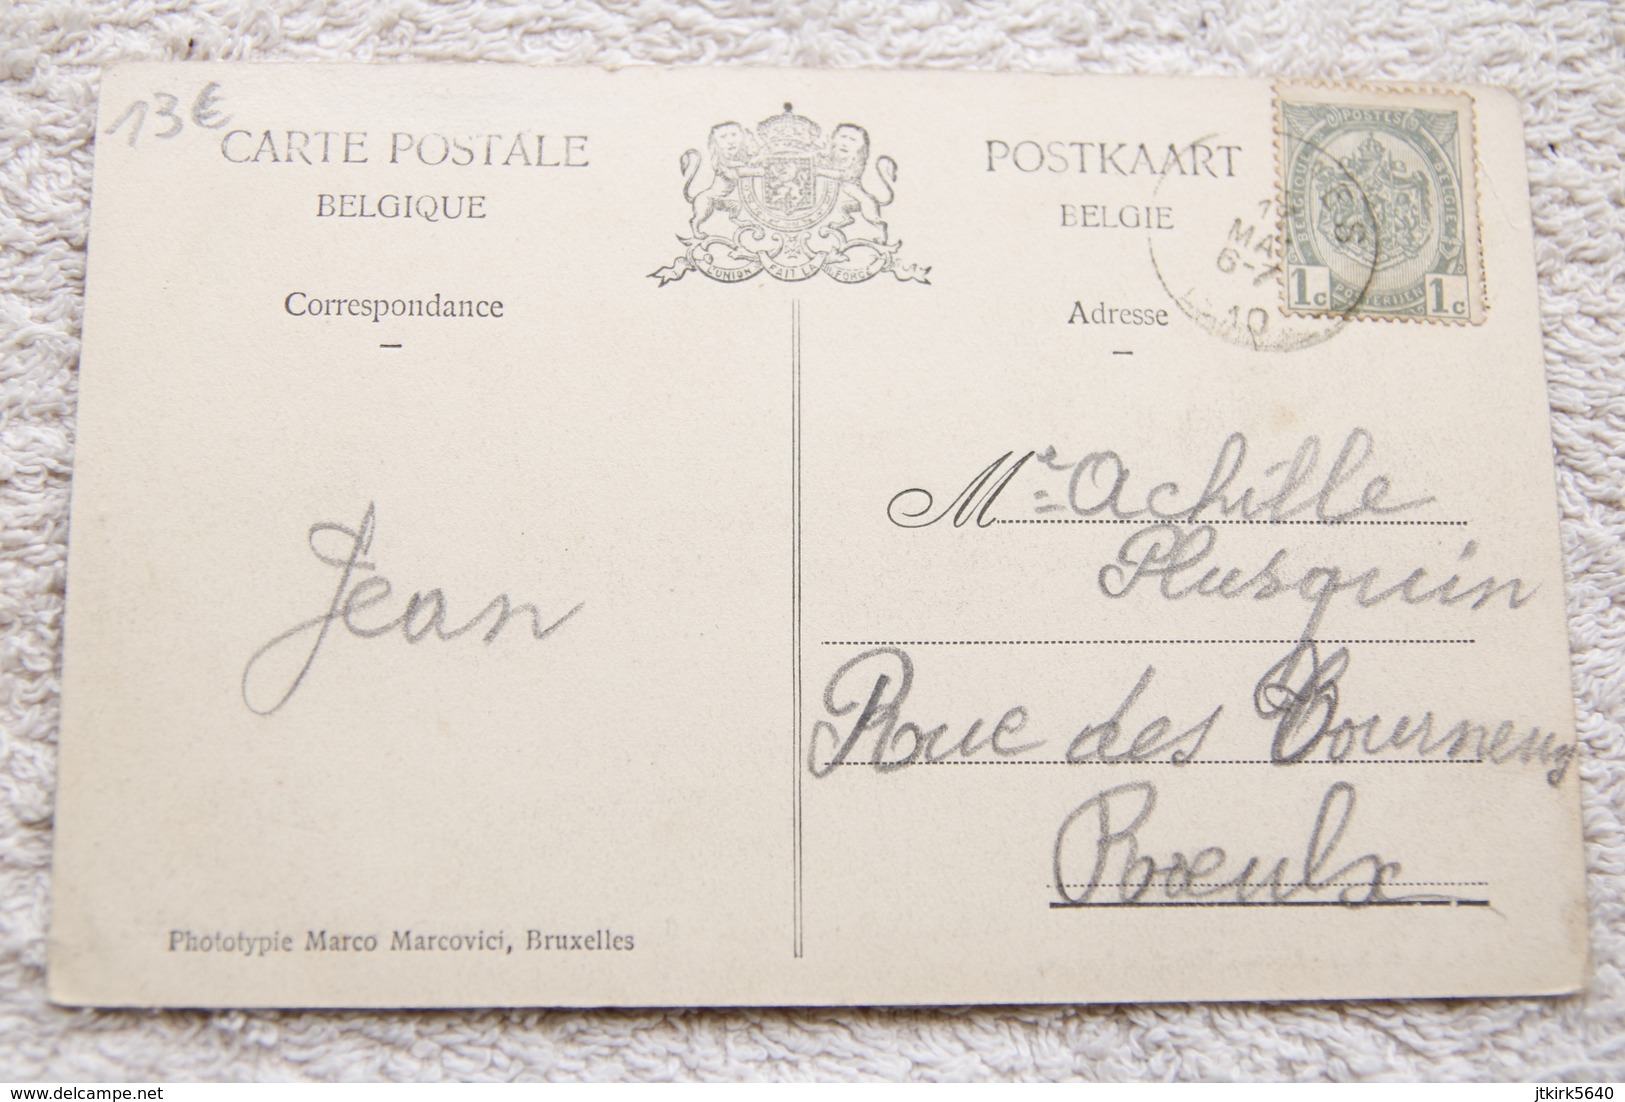 13€
CARTE POSTALE
BELGIQUE
Correspondance
L'UNION FAIT LA FORCE
POSTKAART
BELGIE
Adresse
MAI
6-7
10
POSTES
BELGIQUE BELGIE
1c POSTERIJEN 1c
Me Achille
Plusquin
Rue des Tourneury
Roeulx
Jean
Phototypie Marco Marcovici, Bruxelles
delcampe.net
jtkirk5640